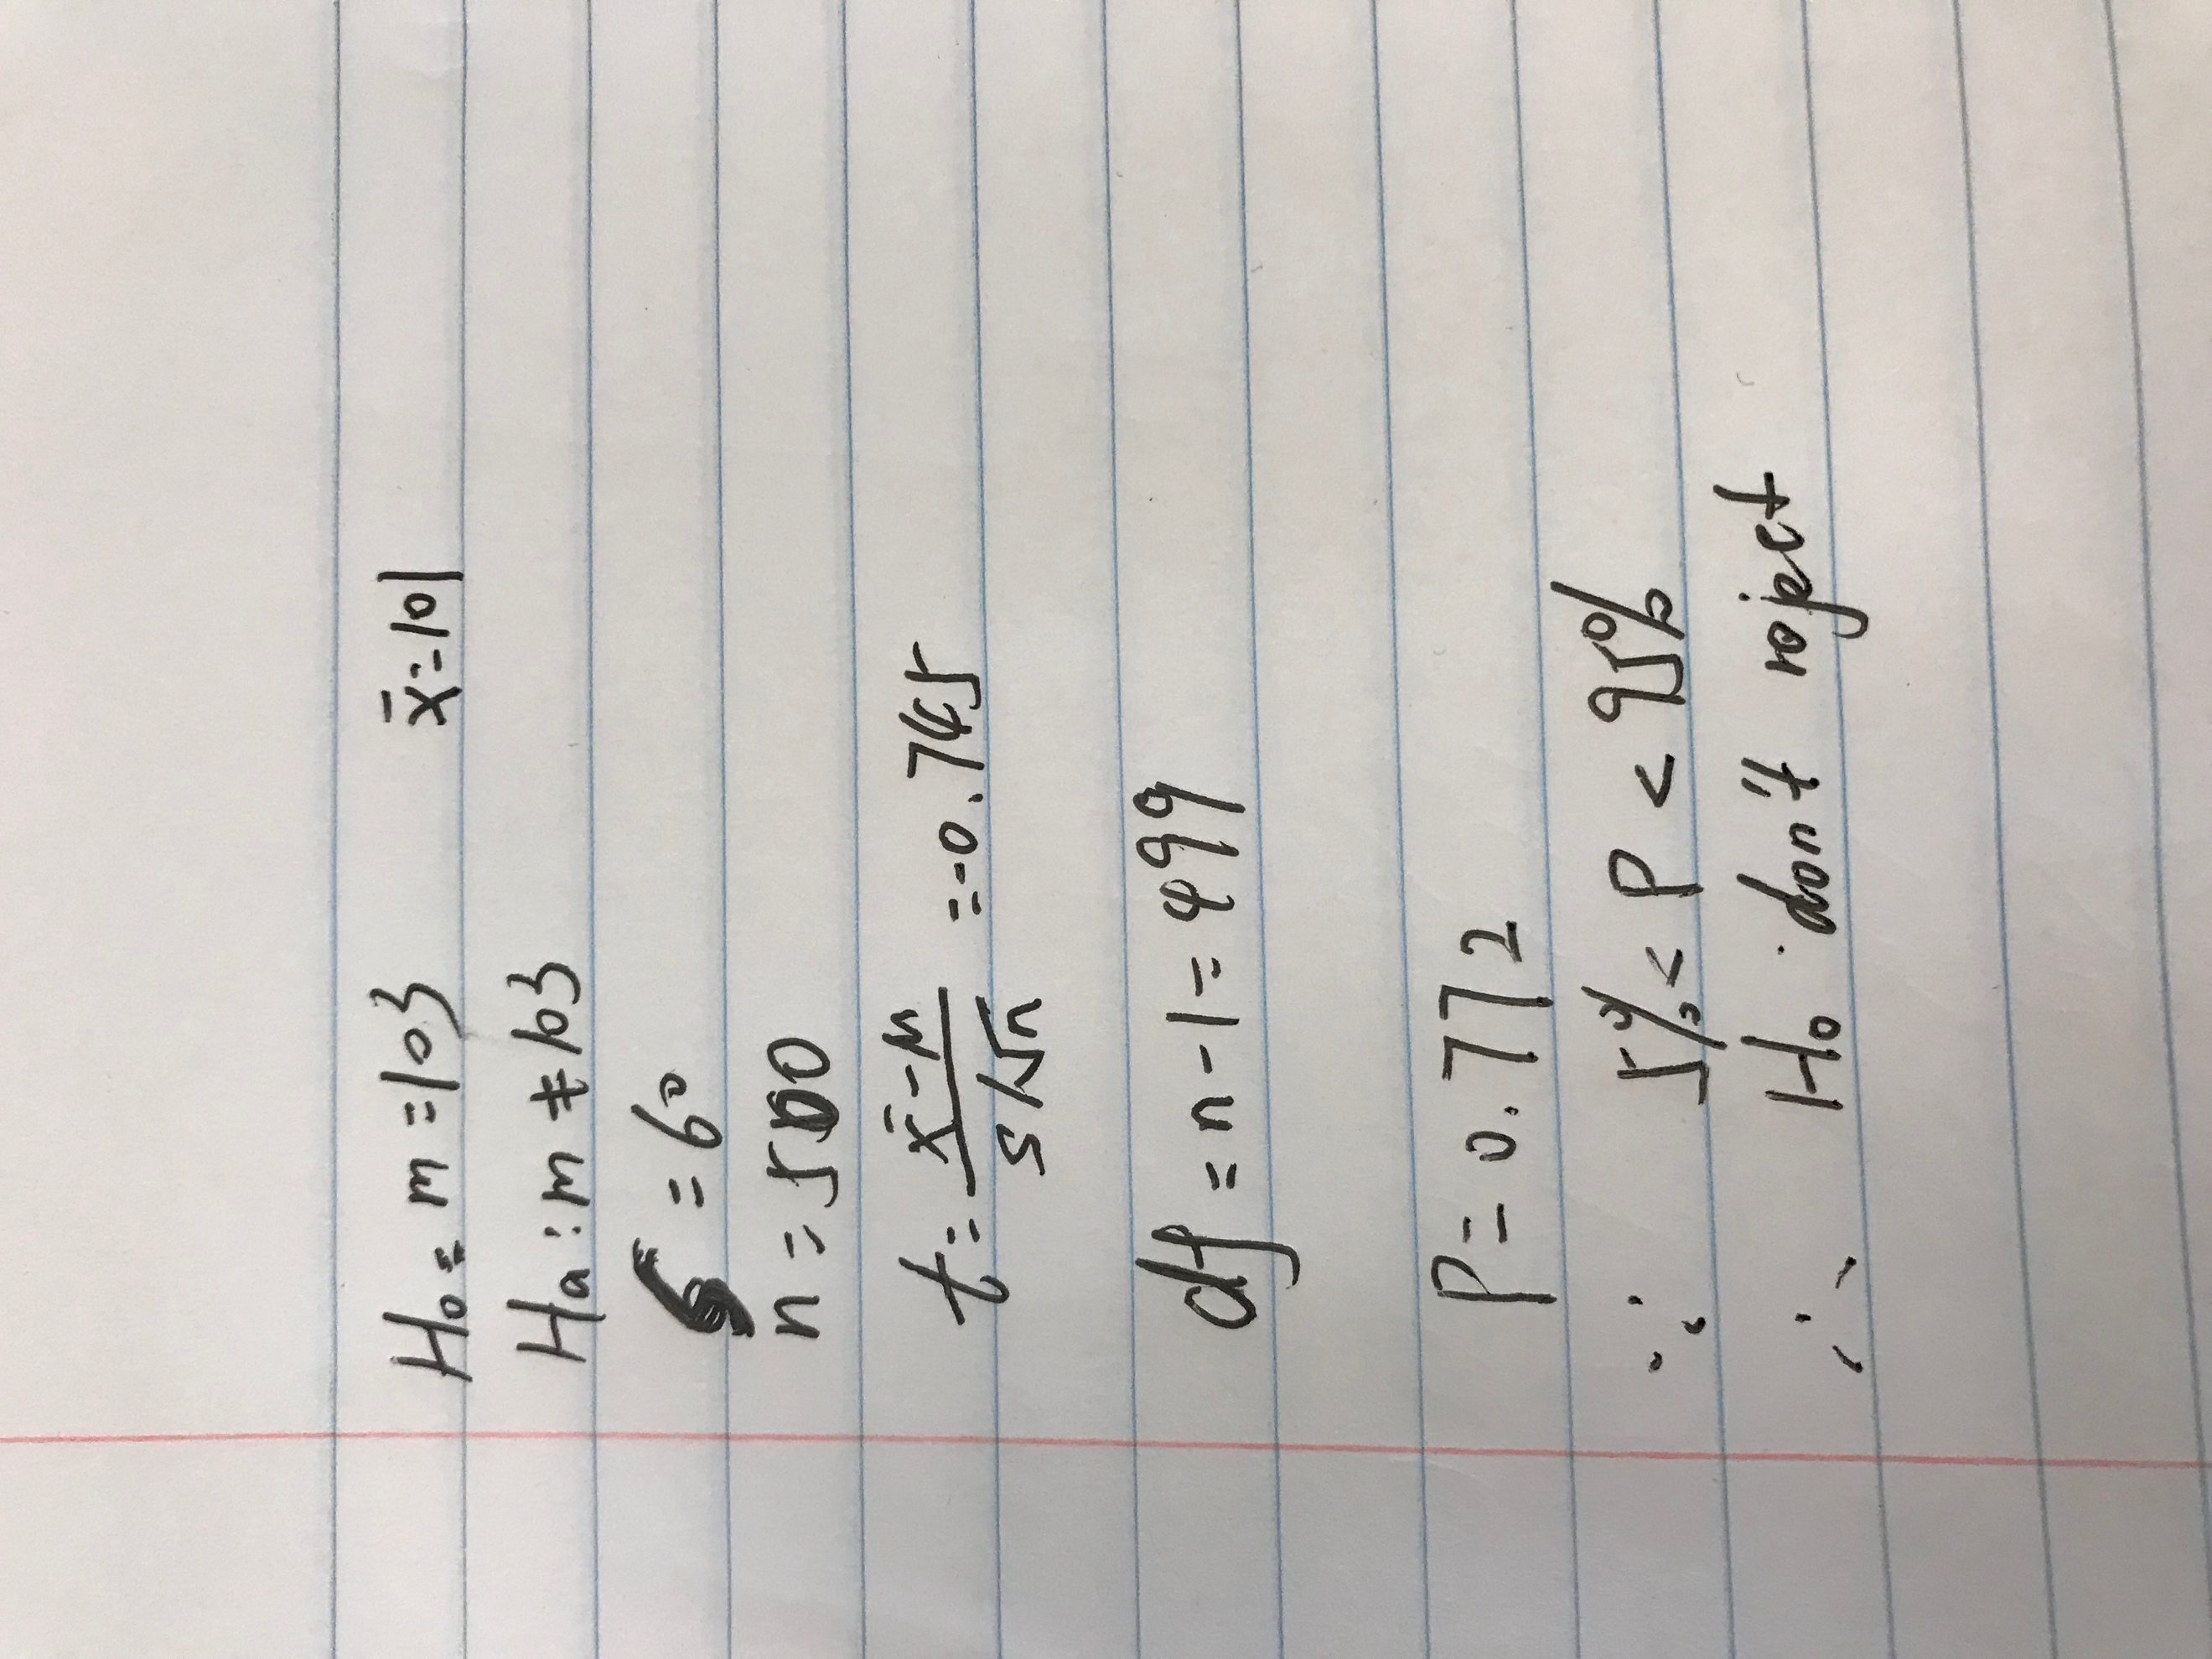 H₀: m = 103 x̄ = 101
Ha: m ≠ 103
S = 60
n = 500
t = x̄ - M / S/√n = -0.745
df = n - 1 = 499
P = 0.772
∵ 5% < P < 95%
∴ H₀ don't reject